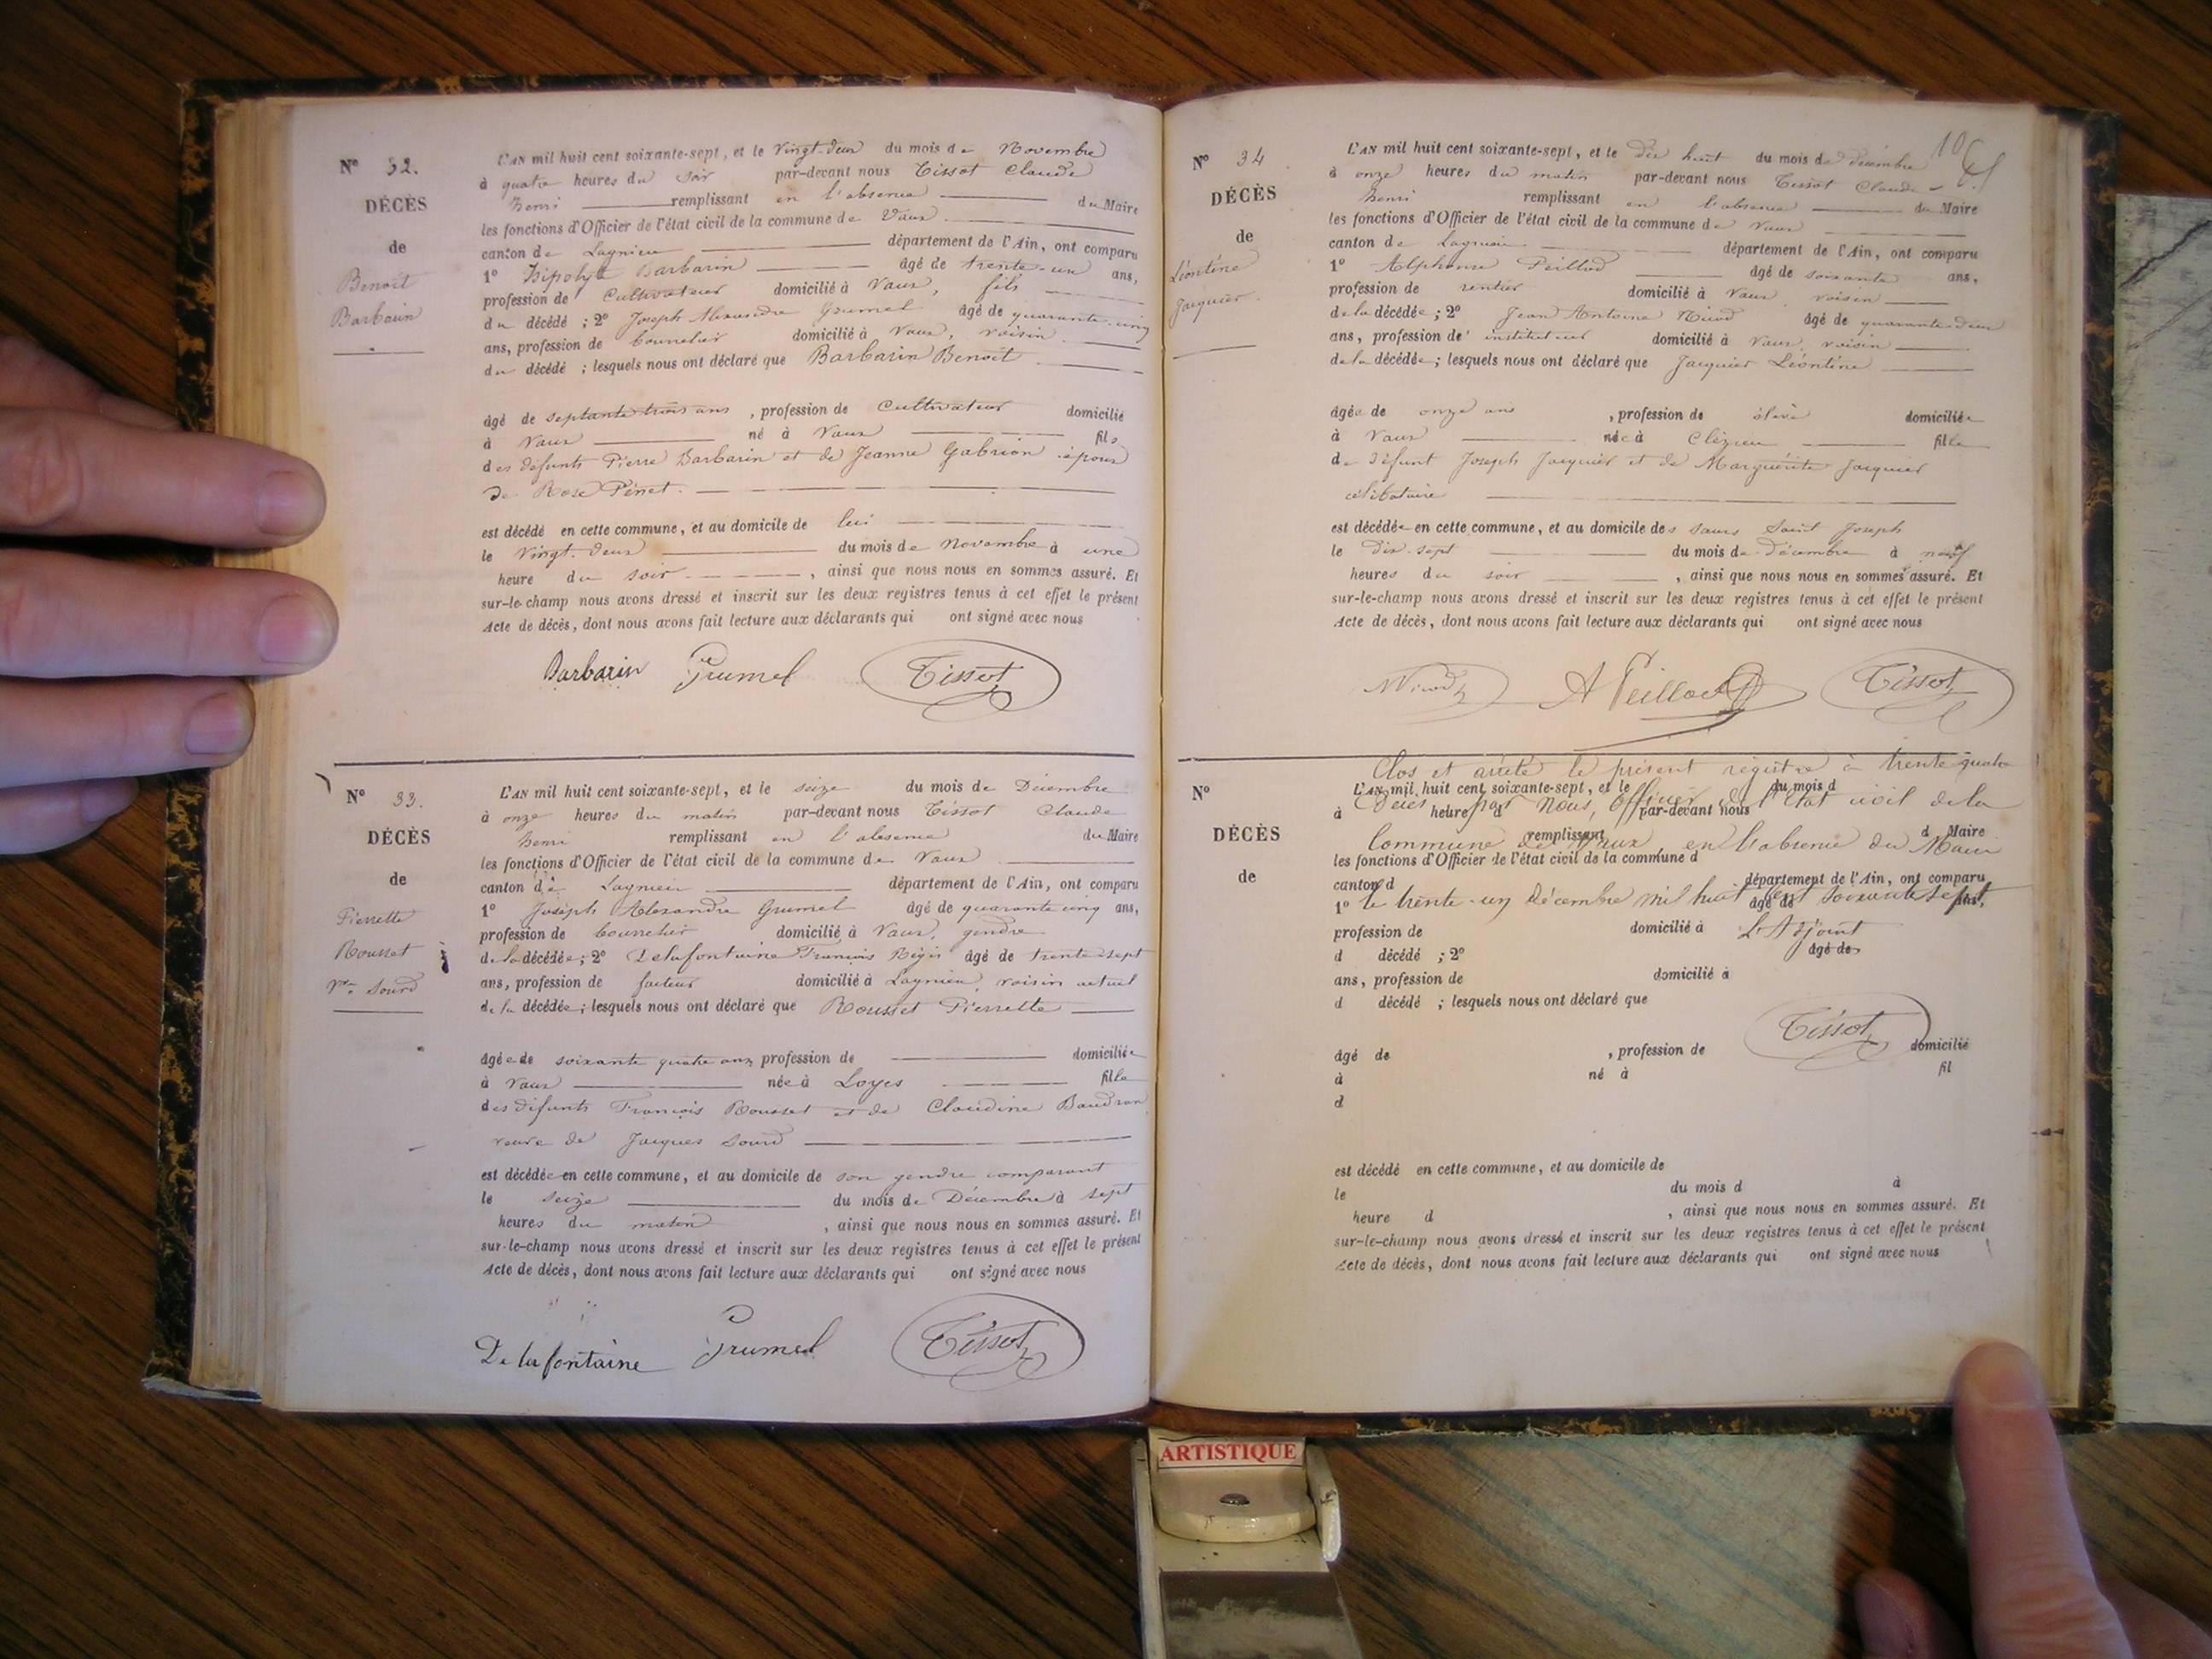 N° 32.
DÉCÈS
de
Benoit
Barbarin
L'AN mil huit cent soixante-sept, et le Vingt-deux du mois de Novembre
à quatre heures du soir par-devant nous Tissot Claude
Henri remplissant en l'absence du Maire
les fonctions d'Officier de l'état civil de la commune de Vaux
canton de Lagnieu département de l'Ain, ont comparu
1° Hipolyte Barbarin âgé de trente-un ans,
profession de Cultivateur domicilié à Vaux, fils
du décédé ; 2° Joseph Alexandre Grumel âgé de quarante-cinq
ans, profession de bourrelier domicilié à Vaux, voisin
du décédé ; lesquels nous ont déclaré que Barbarin Benoit
âgé de septante trois ans , profession de Cultivateur domicilié
à Vaux né à Vaux fils
des défunts Pierre Barbarin et de Jeanne Gabrion époux
de Rose Pénet.
est décédé en cette commune, et au domicile de lui
le Vingt-deux du mois de Novembre à une
heure du soir , ainsi que nous nous en sommes assuré. Et
sur-le-champ nous avons dressé et inscrit sur les deux registres tenus à cet effet le présent
Acte de décès, dont nous avons fait lecture aux déclarants qui ont signé avec nous
Barbarin Grumel Tissot
N° 33.
DÉCÈS
de
Pierrette
Rousset
Vve Sourd
L'AN mil huit cent soixante-sept, et le seize du mois de Décembre
à onze heures du matin par-devant nous Tissot Claude
Henri remplissant en l'absence du Maire
les fonctions d'Officier de l'état civil de la commune de Vaux
canton de Lagnieu département de l'Ain, ont comparu
1° Joseph Alexandre Grumel âgé de quarante cinq ans,
profession de bourrelier domicilié à Vaux, gendre
de la décédée ; 2° Delafontaine François Régis âgé de trente sept
ans, profession de facteur domicilié à Lagnieu, voisin actuel
de la décédée ; lesquels nous ont déclaré que Rousset Pierrette
âgée de soixante quatre ans, profession de domiciliée
à Vaux née à Loyes fille
des défunts François Rousset et de Claudine Baudran
veuve de Jacques Sourd
est décédée en cette commune, et au domicile de son gendre comparant
le seize du mois de Décembre à sept
heures du matin , ainsi que nous nous en sommes assuré. Et
sur-le-champ nous avons dressé et inscrit sur les deux registres tenus à cet effet le présent
Acte de décès, dont nous avons fait lecture aux déclarants qui ont signé avec nous
De lafontaine Grumel Tissot
N° 34
DÉCÈS
de
Léontine
Jacquier.
L'AN mil huit cent soixante-sept, et le dix huit du mois de décembre
à onze heures du matin par-devant nous Tissot Claude
Henri remplissant en l'absence du Maire
les fonctions d'Officier de l'état civil de la commune de Vaux
canton de Lagnieu département de l'Ain, ont comparu
1° Alphonse Peillod âgé de soixante ans,
profession de rentier domicilié à Vaux, voisin
de la décédée ; 2° Jean Antoine Nicod âgé de quarante-deux
ans, profession de instituteur domicilié à Vaux, voisin
de la décédée ; lesquels nous ont déclaré que Jacquier Léontine
âgée de onze ans , profession de élève domiciliée
à Vaux née à Clézieu fille
de défunt Joseph Jacquier et de Marguerite Jacquier
célibataire
est décédée en cette commune, et au domicile des sœurs Saint Joseph
le dix-sept du mois de décembre à neuf
heures du soir , ainsi que nous nous en sommes assuré. Et
sur-le-champ nous avons dressé et inscrit sur les deux registres tenus à cet effet le présent
Acte de décès, dont nous avons fait lecture aux déclarants qui ont signé avec nous
Nicod A Peillod Tissot
Clos et arrêté le présent registre à trente quatre
N° L'AN mil huit cent soixante-sept, et le du mois d
Décès par Nous, Officier de l'état civil de la
à heure d par-devant nous
DÉCÈS
remplissant d Maire
Commune de Vaux en l'absence du Maire
les fonctions d'Officier de l'état civil de la commune d
de
canton d département de l'Ain, ont comparu
le trente-un Décembre mil huit cent soixante sept.
1° âgé de ans,
profession de domicilié à
L'Adjoint
d décédé ; 2° âgé de
ans, profession de domicilié à
d décédé ; lesquels nous ont déclaré que
Tissot
âgé de , profession de domicilié
à né à fil
d
est décédé en cette commune, et au domicile de
le du mois d à
heure d , ainsi que nous nous en sommes assuré. Et
sur-le-champ nous avons dressé et inscrit sur les deux registres tenus à cet effet le présent
Acte de décès, dont nous avons fait lecture aux déclarants qui ont signé avec nous
ARTISTIQUE